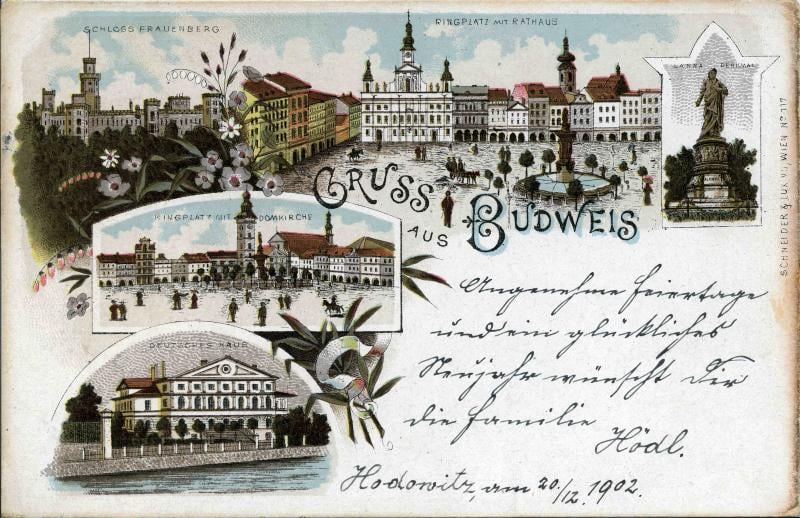 SCHLOSS FRAUENBERG
RINGPLATZ MIT RATHAUS
LANNA DENKMAL
GRUSS
AUS
BUDWEIS
RINGPLATZ MIT DOMKIRCHE
DEUTSCHES HAUS
Angenehme Feiertage
und ein glückliches
Neujahr wünscht Dir
die Familie
Hödl.
Hodowitz, am 20./12. 1902.
WIEN No 117